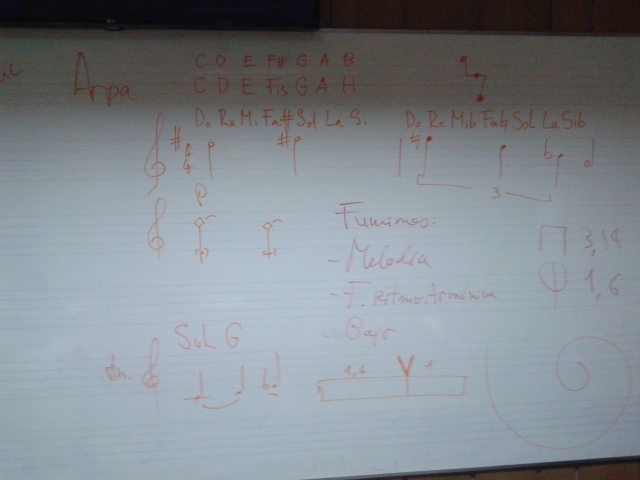 Arpa
C D E F# G A B
C D E Fis G A H
Do Re Mi Fa# Sol La Si
Do Re Mib Fa# Sol La Sib
# 4 4 #
# b
3
p
- Melodia
- F. Ritmo. Armónica
- Bajo
3,14
1,6
Sol G
b
1,6 1